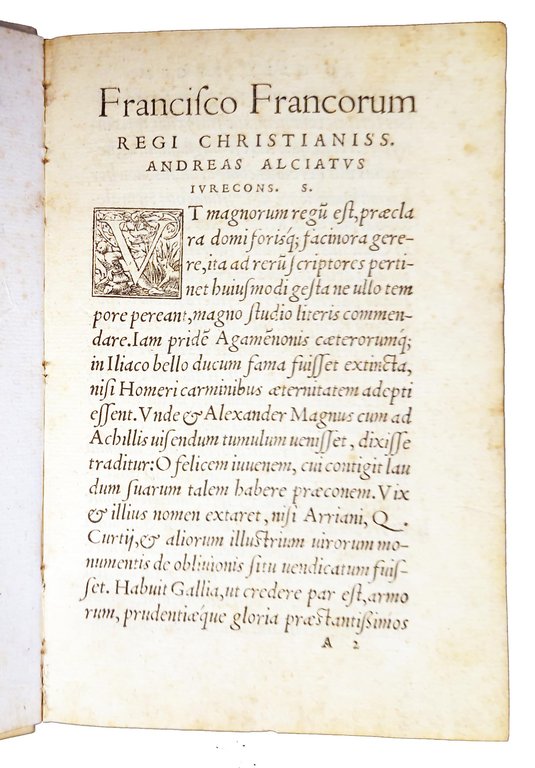 Franciſco Francorum
REGI CHRISTIANISS.
ANDREAS ALCIATVS
IVRECONS. S.
VT magnorum regū eſt, præcla
ra domi foriſq; facinora gere-
re, ita ad rerū ſcriptores perti-
net huiuſmodi geſta ne ullo tem
pore pereant, magno ſtudio literis commen-
dare. Iam pridē Agamēnonis cæterorumq;
in Iliaco bello ducum fama fuiſſet extincta,
niſi Homeri carminibus æternitatem adepti
eſſent. Vnde & Alexander Magnus cum ad
Achillis uiſendum tumulum ueniſſet, dixiſſe
traditur: O felicem iuuenem, cui contigit lau
dum ſuarum talem habere præconem. Vix
& illius nomen extaret, niſi Arriani, Q.
Curtij, & aliorum illuſtrium uirorum mo-
numentis de obliuionis ſitu uendicatum fuiſ-
ſet. Habuit Gallia, ut credere par eſt, armo
rum, prudentiǽque gloria præſtantiſsimos
A 2